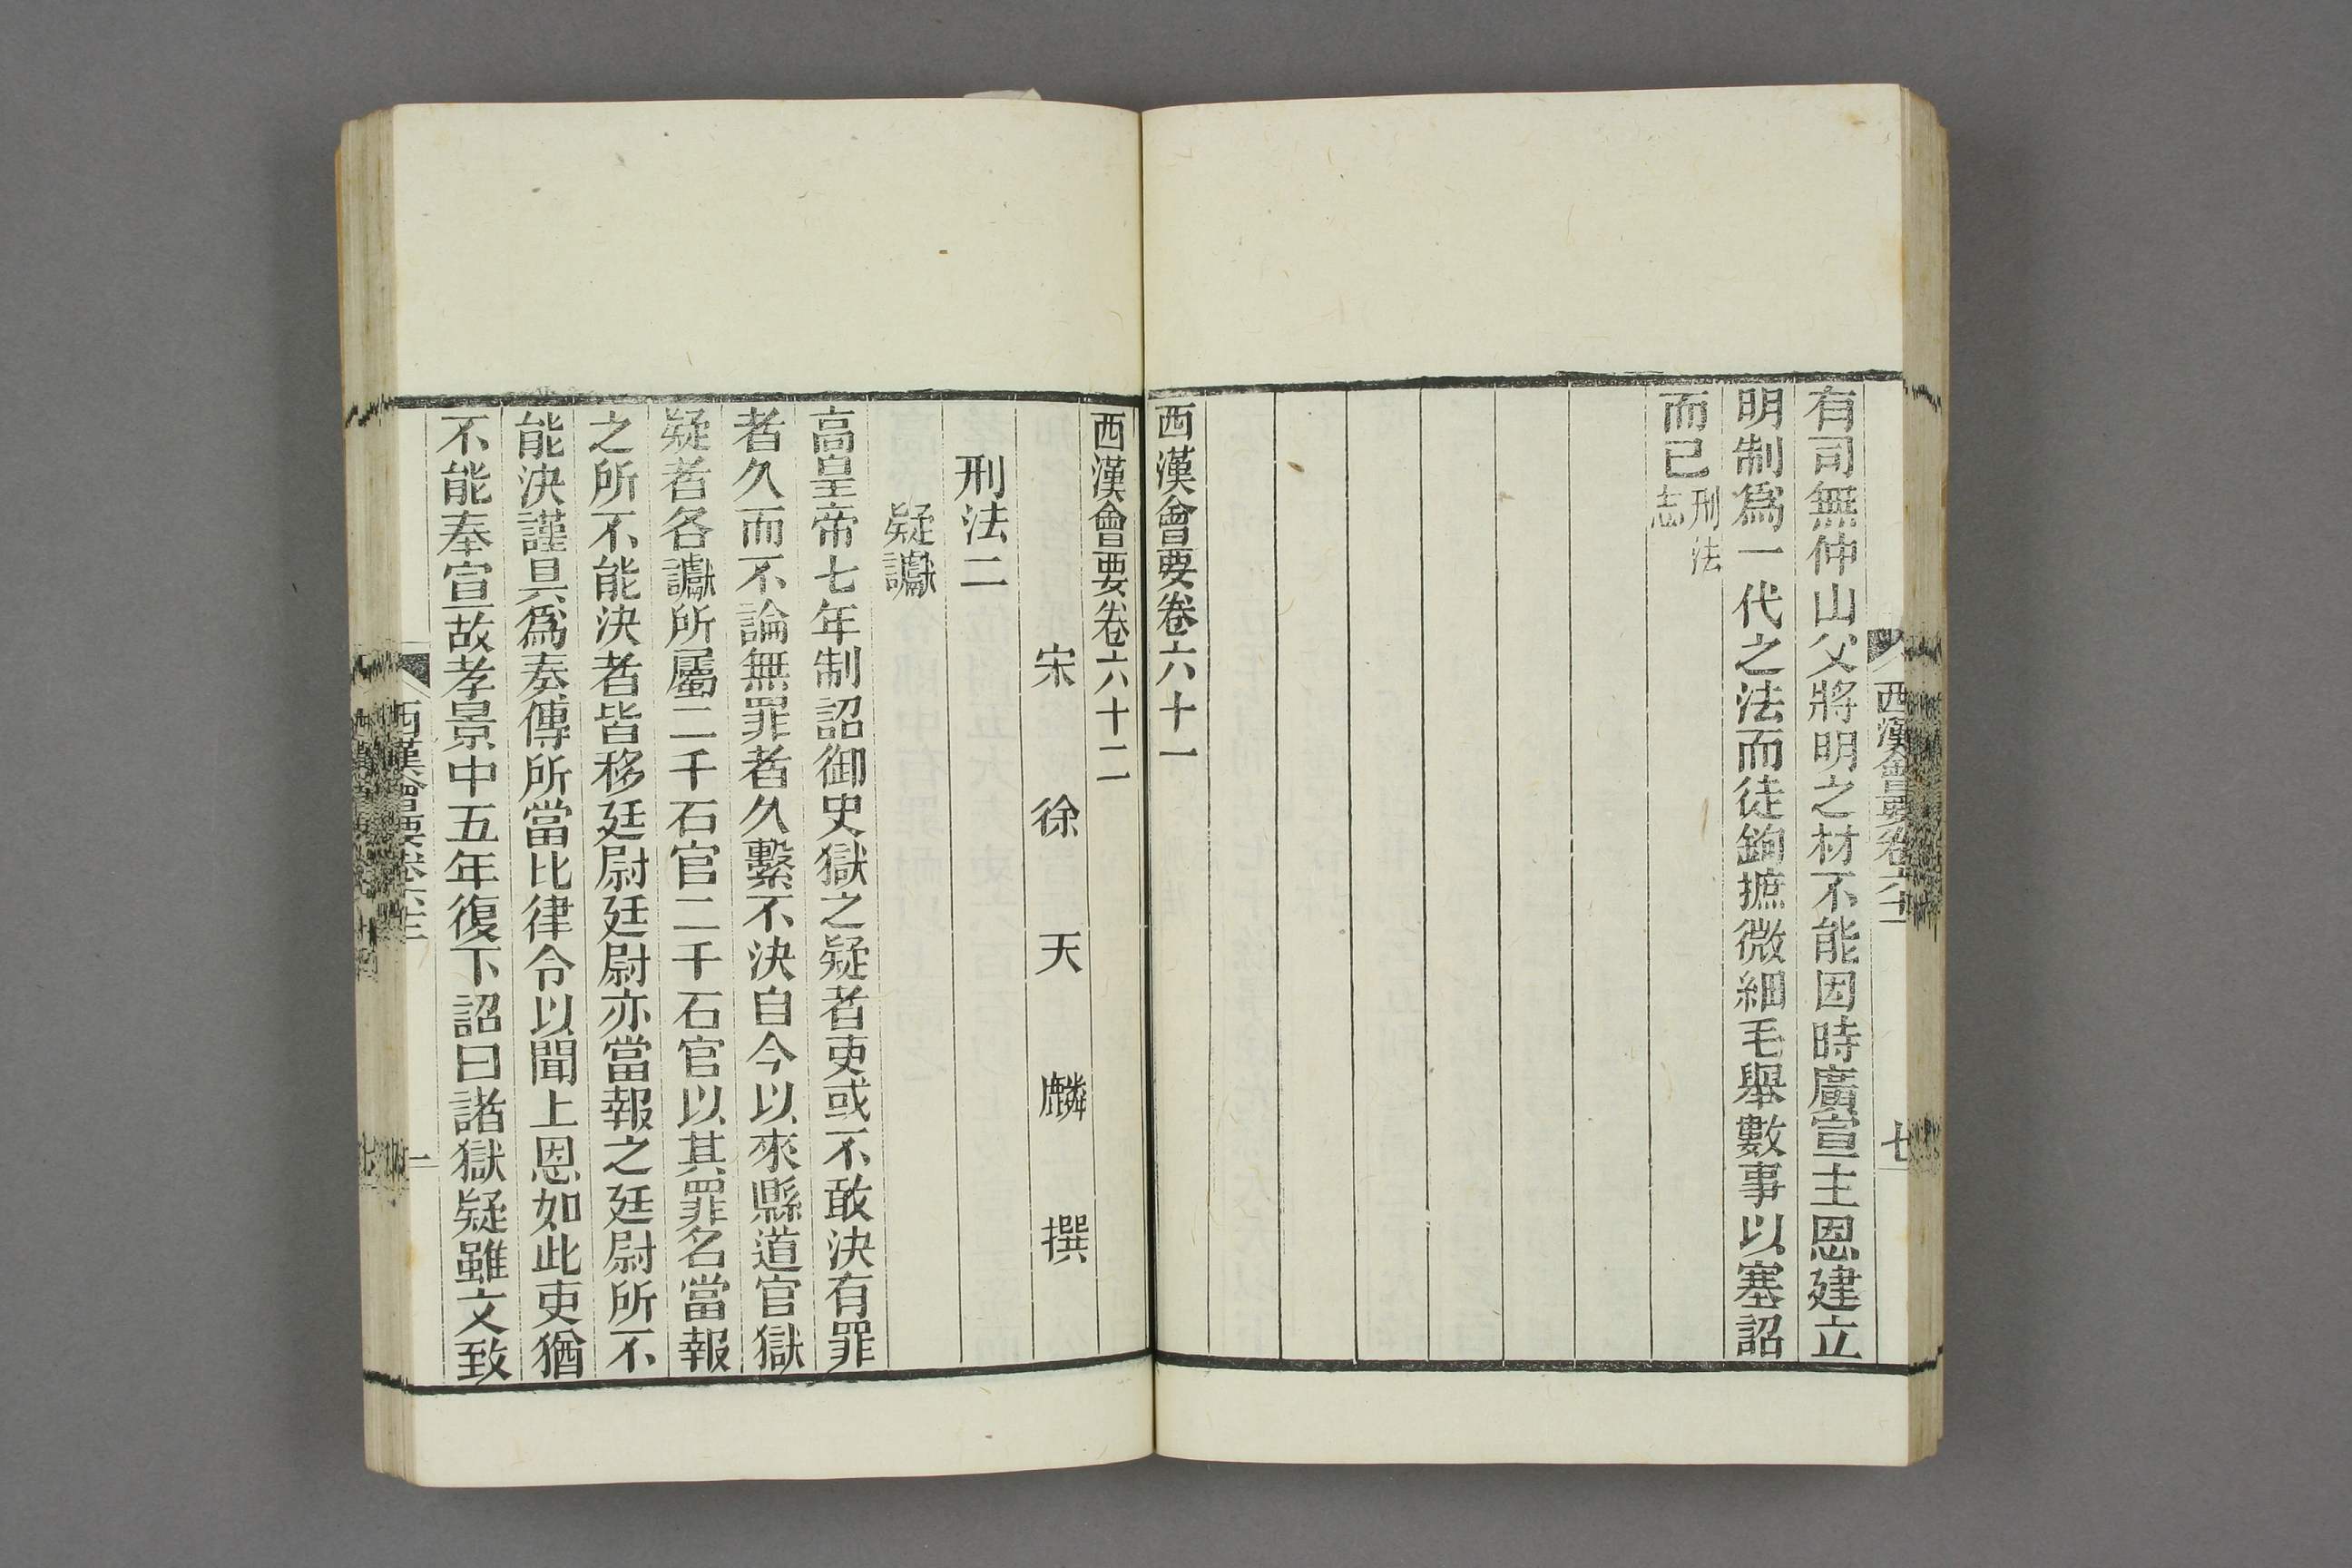 西漢會要卷六十一
七
有司無仲山父將明之材不能因時廣宣主恩建立
明制爲一代之法而徒鉤摭微細毛舉數事以塞詔
而已刑法
志
西漢會要卷六十一
西漢會要卷六十二
宋徐天麟撰
刑法二
疑讞
高皇帝七年制詔御史獄之疑者吏或不敢決有罪
者久而不論無罪者久繫不決自今以來縣道官獄
疑者各讞所屬二千石官二千石官以其罪名當報
之所不能決者皆移廷尉廷尉亦當報之廷尉所不
能決謹具爲奏傅所當比律令以聞上恩如此吏猶
不能奉宣故孝景中五年復下詔曰諸獄疑雖文致
西漢會要卷六十二
一